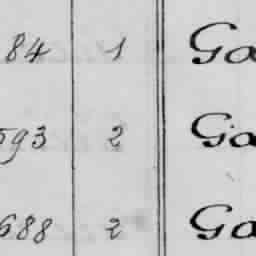 84 1 Ga
593 2 Ga
688 2 Ga